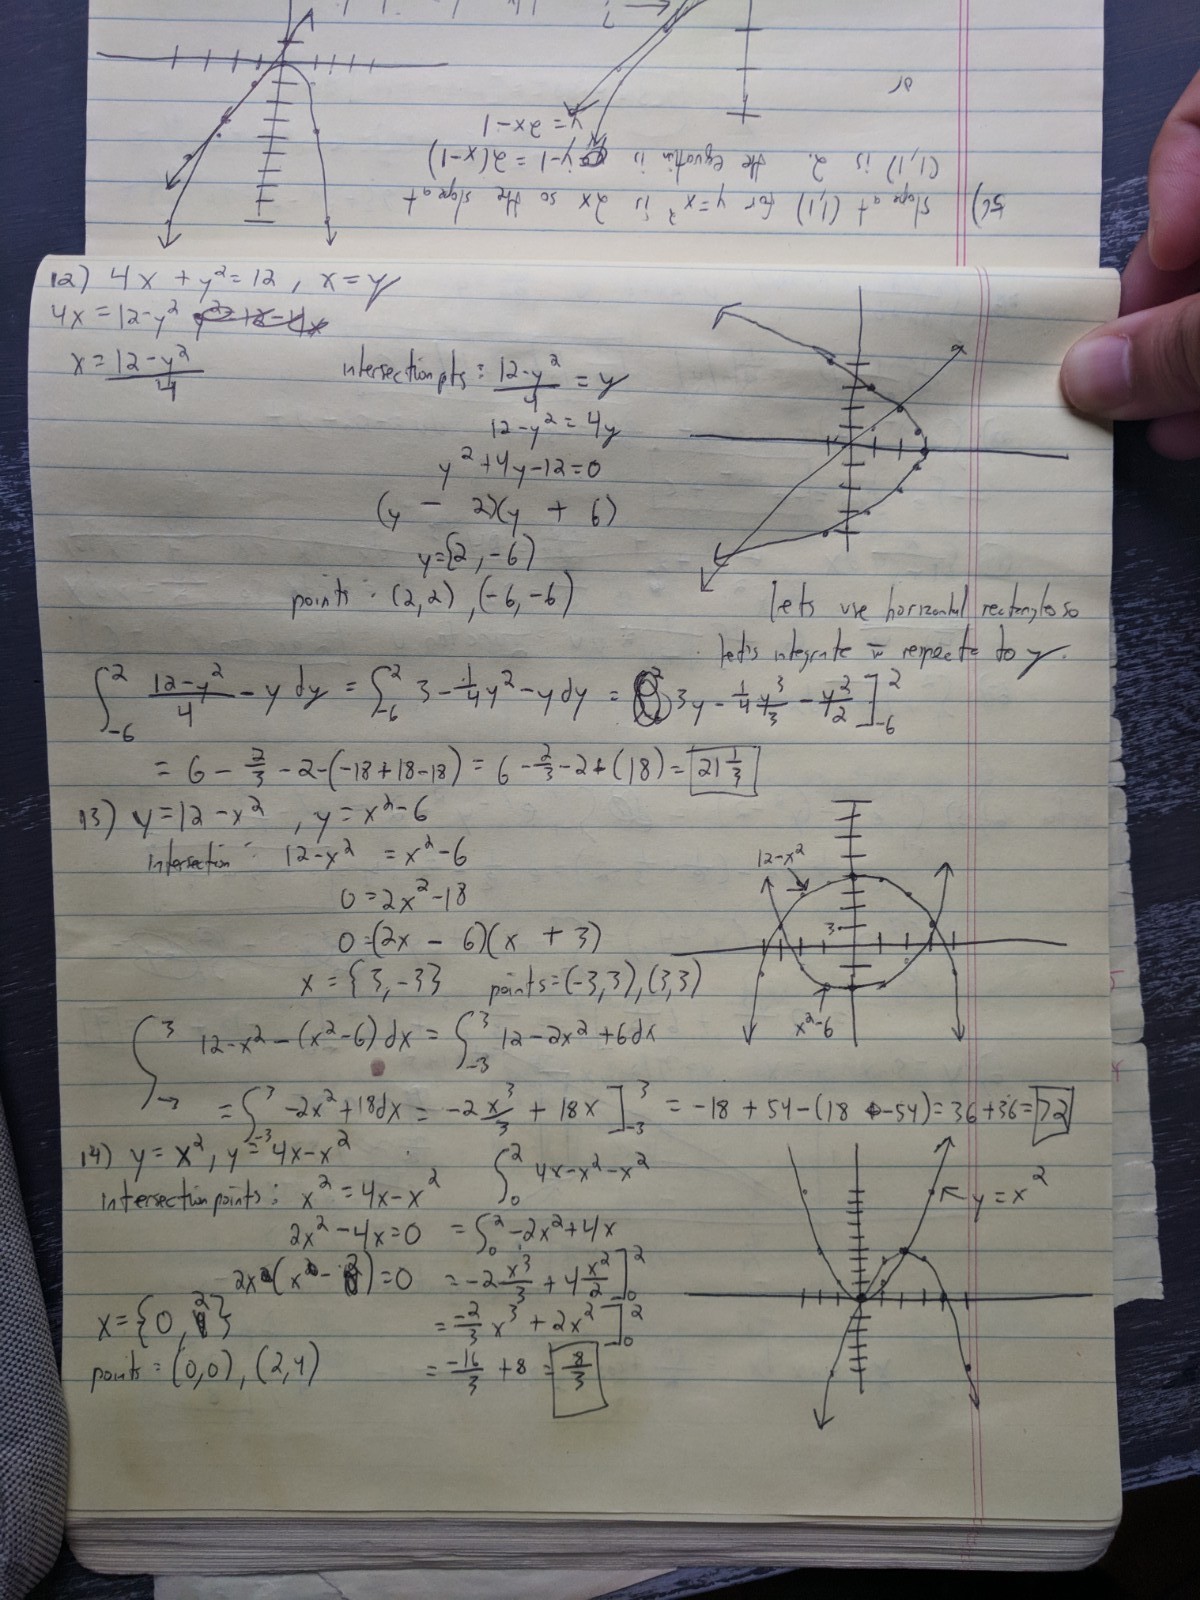 56) slope at (1,1) for y=x² is 2x so the slope at
(1,1) is 2. the equation is y-1 = 2(x-1)
y = 2x-1
or
12) 4x + y² = 12 , x = y
4x = 12-y²
x = (12-y²)/4
intersection pts : (12-y²)/4 = y
12-y² = 4y
y² + 4y - 12 = 0
(y - 2)(y + 6)
y={2, -6}
points : (2,2) , (-6,-6)
lets use horizontal rectangles so
let's integrate w respecte to y.
∫₋₆² (12-y²)/4 - y dy = ∫₋₆² 3 - 1/4 y² - y dy = 3y - 1/4 y³/3 - y²/2 ]₋₆²
= 6 - 2/3 - 2 - (-18 + 18 - 18) = 6 - 2/3 - 2 + (18) = 21 1/3
13) y = 12 - x² , y = x² - 6
intersection : 12-x² = x² - 6
0 = 2x² - 18
0 = (2x - 6)(x + 3)
x = {3, -3} points = (-3,3), (3,3)
12-x²
3
x²-6
∫₋₃³ 12-x² - (x²-6) dx = ∫₋₃³ 12 - 2x² + 6 dx
= ∫₋₃³ -2x² + 18 dx = -2 x³/3 + 18x ]₋₃³ = -18 + 54 - (18 - 54) = 36 + 36 = 72
14) y = x², y = 4x - x²
intersection points : x² = 4x - x²
2x² - 4x = 0
2x (x - 2) = 0
x = {0, 2}
points = (0,0), (2,4)
∫₀² 4x - x² - x²
= ∫₀² -2x² + 4x
= -2 x³/3 + 4 x²/2 ]₀²
= -2/3 x³ + 2x² ]₀²
= -16/3 + 8 = 8/3
y = x²